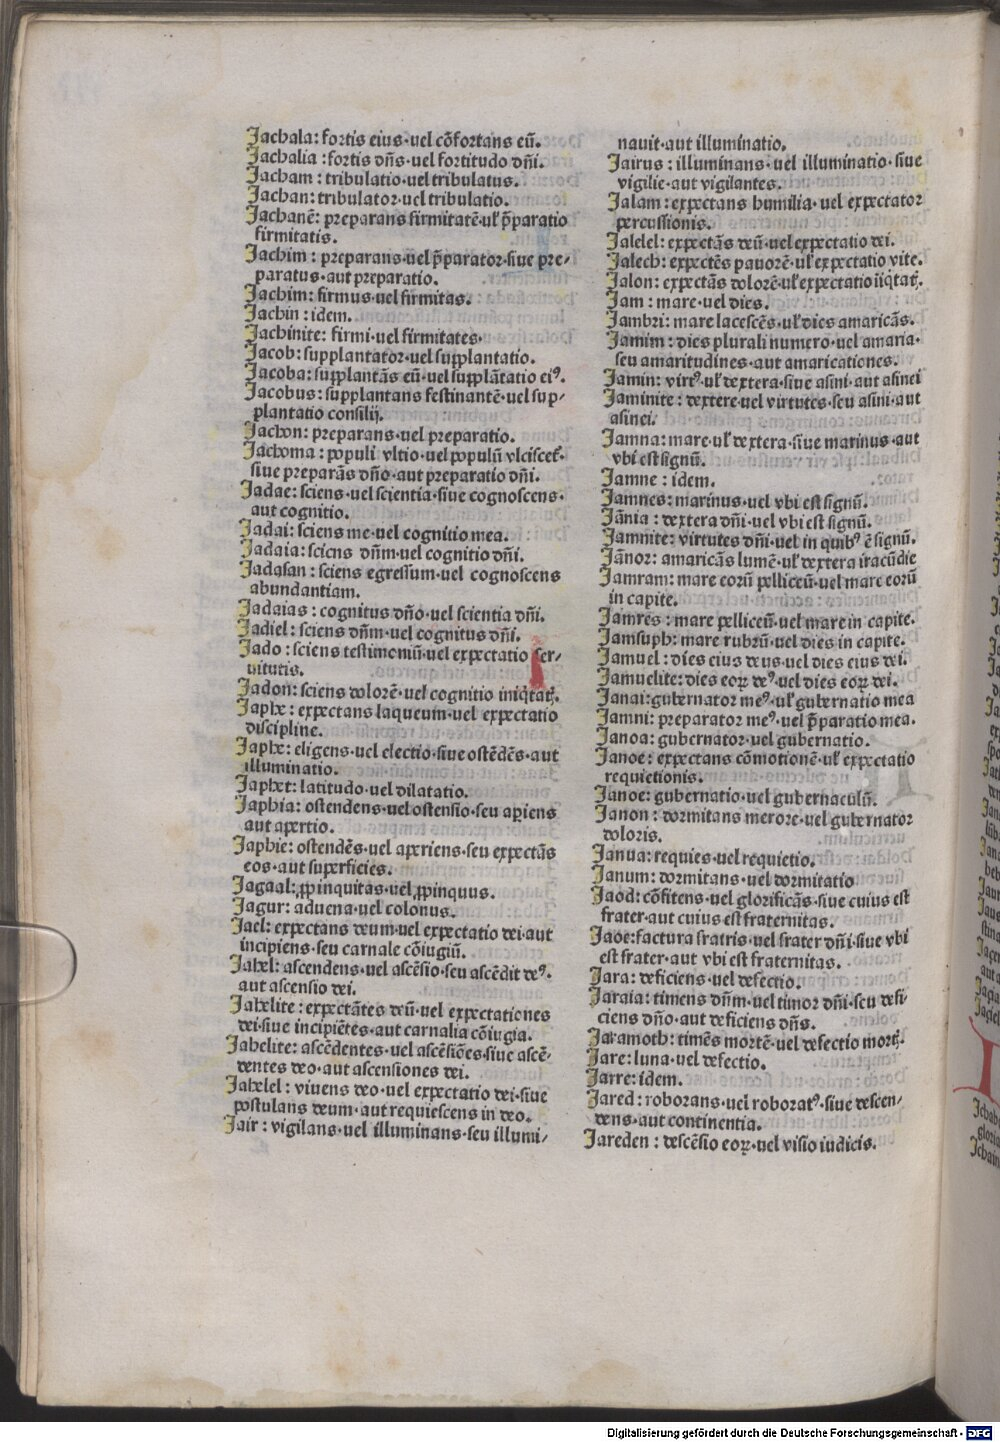 Jachala: fortis eius·uel cōfortans eū.
Jachalia: fortis dn̄s·uel fortitudo dn̄i.
Jacham: tribulatio·uel tribulatus.
Jachan: tribulator·uel tribulatio.
Jachanē: preparans firmitatē·ul̕ p̄paratio
firmitatis.
Jachim: preparans·uel p̄parator·siue pre/
paratus·aut preparatio.
Jachim: firmus·uel firmitas.
Jachin: idem.
Jachinite: firmi·uel firmitates·
Jacob: supplantator·uel supplantatio.
Jacoba: supplantās eū·uel supplātatio eiꝰ.
Jacobus: supplantans festinantē·uel sup/
plantatio consilij.
Jachon: preparans·uel preparatio.
Jachoma: populi vltio·uel populū vlciscet̕·
siue preparās dn̄o·aut preparatio dn̄i.
Jadae: sciens·uel scientia·siue cognoscens·
aut cognitio.
Jadai: sciens me·uel cognitio mea.
Jadaia: sciens dn̄m·uel cognitio dn̄i.
Jadasan: sciens egressum·uel cognoscens
abundantiam.
Jadaias: cognitus dn̄o·uel scientia dn̄i.
Jadiel: sciens dn̄m·uel cognitus dn̄i.
Jado: sciens testimoniū·uel expectatio ser/
uitutis.
Jadon: sciens dolorē·uel cognitio iniq̇tatꝭ.
Japhe: expectans laqueum·uel expectatio
discipline.
Japhe: eligens·uel electio·siue ostēdēs·aut
illuminatio.
Japhet: latitudo·uel dilatatio.
Japhia: ostendens·uel ostensio·seu apiens
aut apertio.
Japhie: ostendēs·uel aperiens·seu expectās
eos·aut superficies.
Jagaal: ꝓpinquitas·uel ꝓpinquus.
Jagur: aduena·uel colonus.
Jael: expectans deum·uel expectatio dei·aut
incipiens·seu carnale cōiugiū.
Jahel: ascendens·uel ascēsio·seu ascēdit deꝰ·
aut ascensio dei.
Jahelite: expectātes deū·uel expectationes
dei·siue incipiētes·aut carnalia cōiugia.
Jahelite: ascēdentes·uel ascēsiōes·siue ascē/
dentes deo·aut ascensiones dei.
Jahelel: viuens deo·uel expectatio dei·siue
postulans deum·aut requiescens in deo.
Jair: vigilans·uel illuminans·seu illumi/
nauit·aut illuminatio.
Jairus: illuminans·uel illuminatio·siue
vigilie·aut vigilantes.
Jalam: expectans humilia·uel expectator
percussionis.
Jalelel: expectās deū·uel expectatio dei.
Jalech: expectēs pauorē·ul̕ expectatio vite.
Jalon: expectās dolorē·ul̕ expectatio iiq̇tatꝭ.
Jam: mare·uel dies.
Jambri: mare lacescēs·ul̕ dies amaricās.
Jamim: dies plurali numero·uel amaria·
seu amaritudines·aut amaricationes.
Jamin: virtꝰ·ul̕ dextera·siue asini·aut asinei
Jaminite: dextere·uel virtutes·seu asini·aut
asinei.
Jamna: mare·ul̕ dextera·siue marinus·aut
vbi est signū.
Jamne: idem.
Jamnes: marinus·uel vbi est signū.
Jānia: dextera dn̄i·uel vbi est signū.
Jamnite: virtutes dn̄i·uel in quibꝰ ē signū.
Jānor: amaricās lumē·ul̕ dextera iracūdie
Jamram: mare eorū pelliceū·uel mare eorū
in capite.
Jamres: mare pelliceū·uel mare in capite.
Jamsuph: mare rubrū·uel dies in capite.
Jamuel: dies eius deus·uel dies eius dei.
Jamuelite: dies eoꝝ deꝰ·uel dies eoꝝ dei.
Janai: gubernator meꝰ·ul̕ gubernatio mea
Jamni: preparator meꝰ·uel p̄paratio mea.
Janoa: gubernator·uel gubernatio.
Janoe: expectans cōmotionē·ul̕ expectatio
requietionis.
Janoe: gubernatio·uel gubernaculū.
Janon: dormitans merore·uel gubernator
doloris.
Janua: requies·uel requietio.
Janum: dormitans·uel dormitatio
Jaod: cōfitens·uel glorificās·siue cuius est
frater·aut cuius est fraternitas.
Jaoe: factura fratris·uel frater dn̄i·siue vbi
est frater·aut vbi est fraternitas.
Jara: deficiens·uel defectio.
Jaraia: timens dn̄m·uel timor dn̄i·seu defi
ciens dn̄o·aut deficiens dn̄s.
Jaramoth: timēs mortē·uel defectio mortꝭ.
Jare: luna·uel defectio.
Jarre: idem.
Jared: roborans·uel roboratꝰ·siue descen/
dens·aut continentia.
Jareden: descēsio eoꝝ·uel visio iudicis.
Digitalisierung gefördert durch die Deutsche Forschungsgemeinschaft - DFG